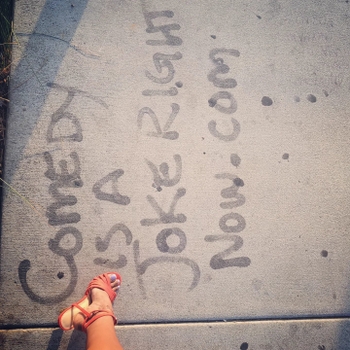 COMEDY
IS A
JOKE RIGHT
NOW.COM